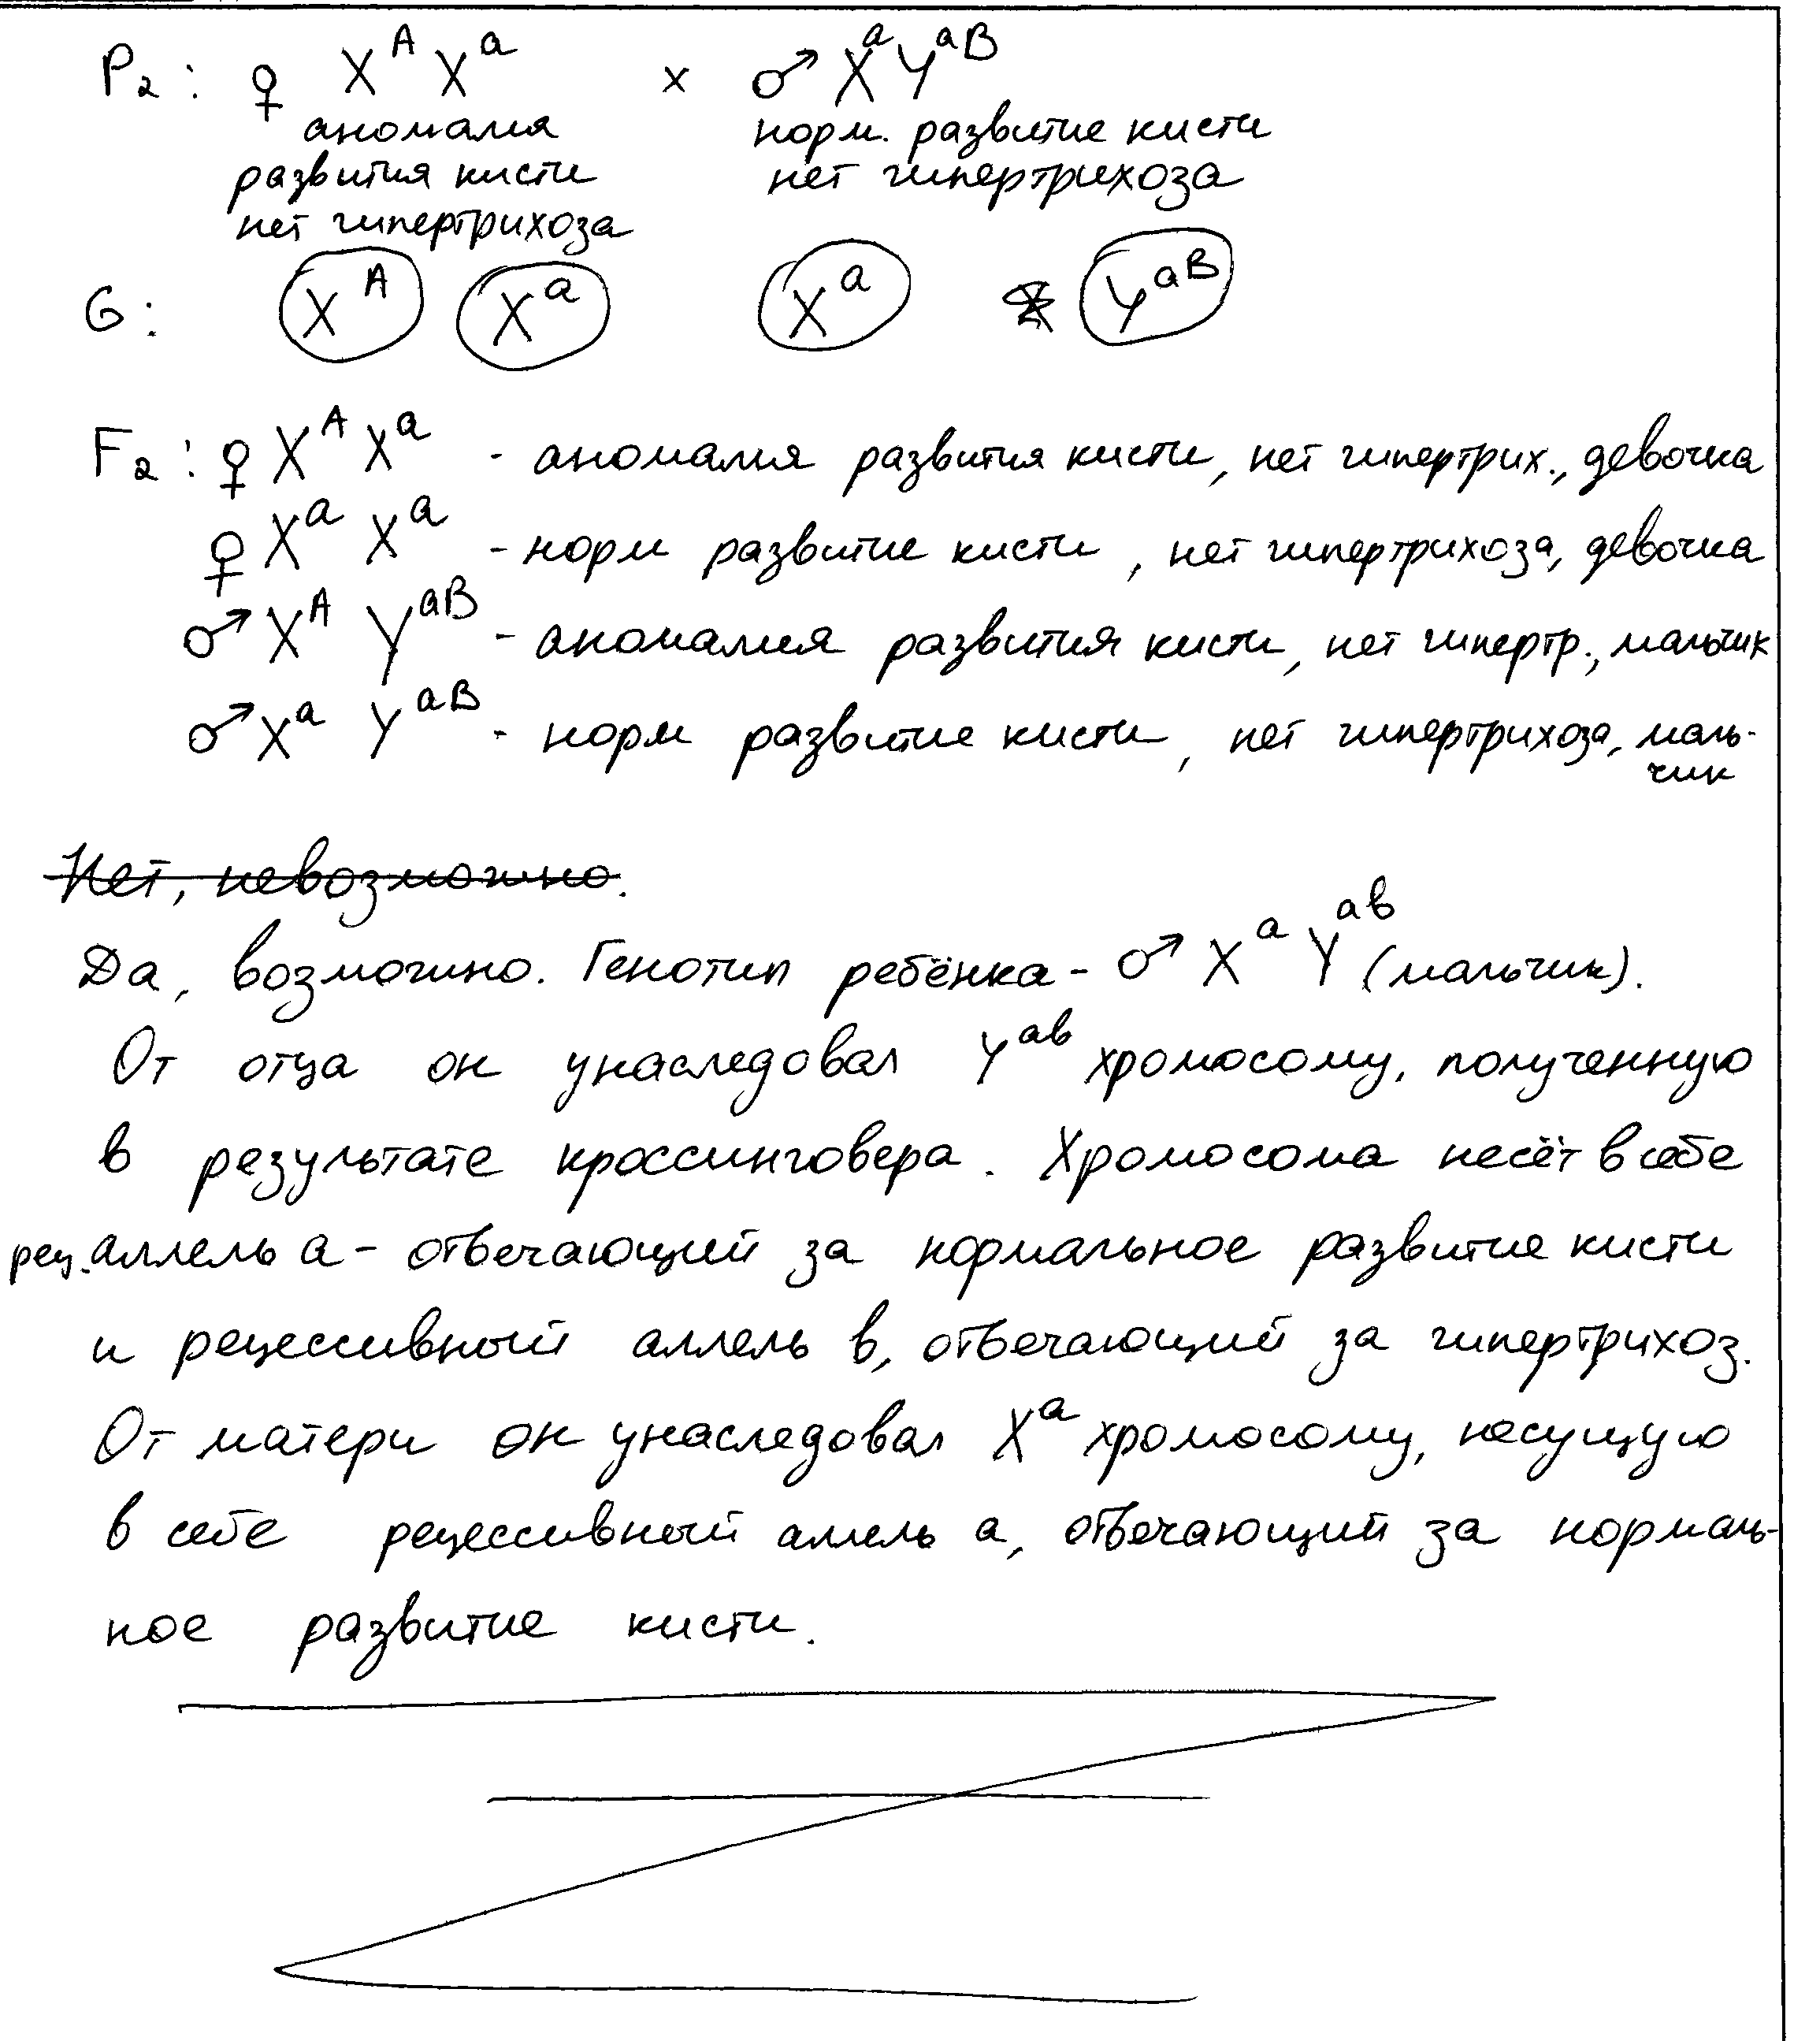 P₂ : ♀ X^A X^a x ♂ X^a Y^aB
аномалия норм. развитие кисти
развития кисти нет гипертрихоза
нет гипертрихоза
G : X^A X^a X^a Y^aB
F₂ : ♀ X^A X^a - аномалия развития кисти, нет гипертрих., девочка
♀ X^a X^a - норм развитие кисти, нет гипертрихоза, девочка
♂ X^A Y^aB - аномалия развития кисти, нет гипертр., мальчик
♂ X^a Y^aB - норм развитие кисти, нет гипертрихоза, маль-
чик
Нет, невозможно.
Да, возможно. Генотип ребёнка - ♂ X^a Y^ab (мальчик).
От отца он унаследовал Y^ab хромосому, полученную
в результате кроссинговера. Хромосома несёт в себе
рец. аллель a - отвечающий за нормальное развитие кисти
и рецессивный аллель b, отвечающий за гипертрихоз.
От матери он унаследовал X^a хромосому, несущую
в себе рецессивный аллель a, отвечающий за нормаль-
ное развитие кисти.